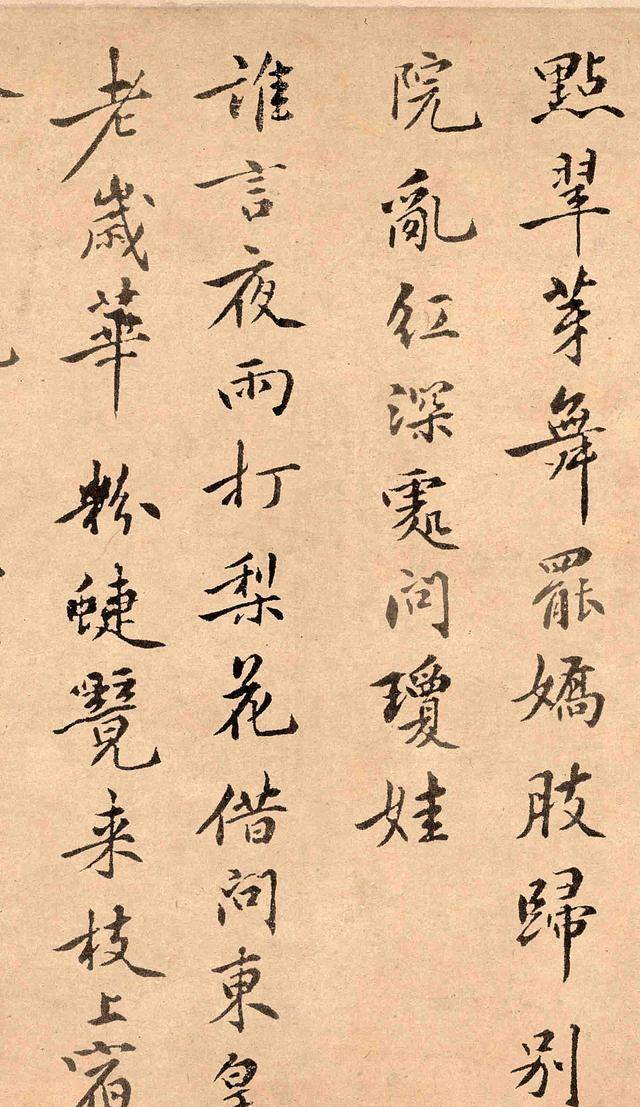 點翠芽舞罷嬌肢歸别
院亂紅深處問瓊娃
誰言夜雨打梨花借問東皇
老歲華粉蜨覺来枝上宿